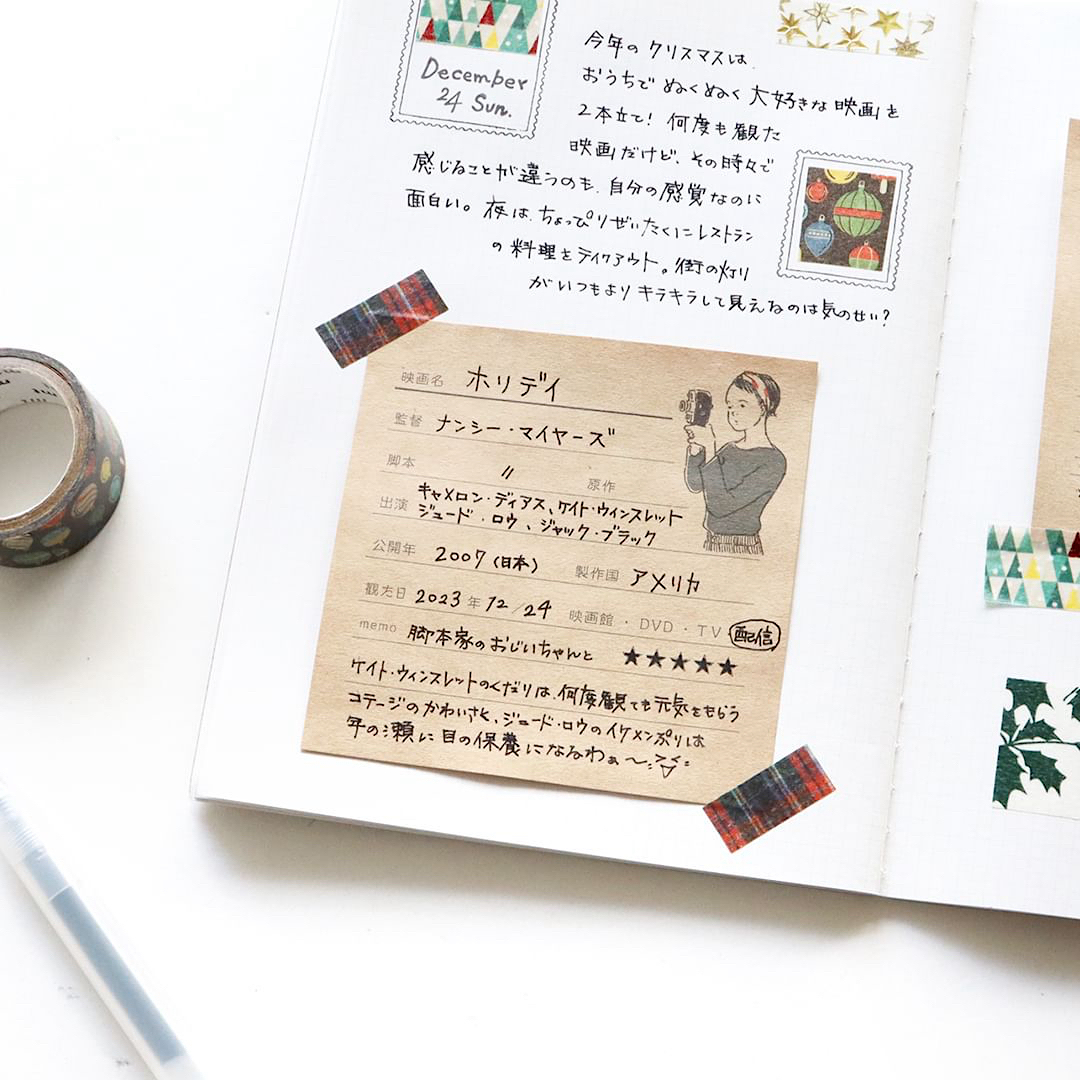 December
24 Sun.
今年のクリスマスは、
おうちで ぬくぬく 大好きな映画を
2本立て! 何度も観た
映画だけど、その時々で
感じることが違うのも、自分の感覚なのに
面白い。夜は、ちょっぴりぜいたくにレストラン
の料理をテイクアウト。街の灯り
がいつもより キラキラして見えるのは気のせい?
映画名 ホリデイ
監督 ナンシー・マイヤーズ
脚本 〃 原作
出演 キャメロン・ディアス、ケイト・ウィンスレット
ジュード・ロウ、ジャック・ブラック
公開年 2007(日本) 製作国 アメリカ
観た日 2023年12/24 映画館・DVD・TV 配信
memo 脚本家のおじいちゃんと ★★★★★
ケイト・ウィンスレットのくだりは、何度観ても元気をもらう
コテージのかわいさと、ジュード・ロウのイケメンぷりは
年の瀬に目の保養になるわぁ〜